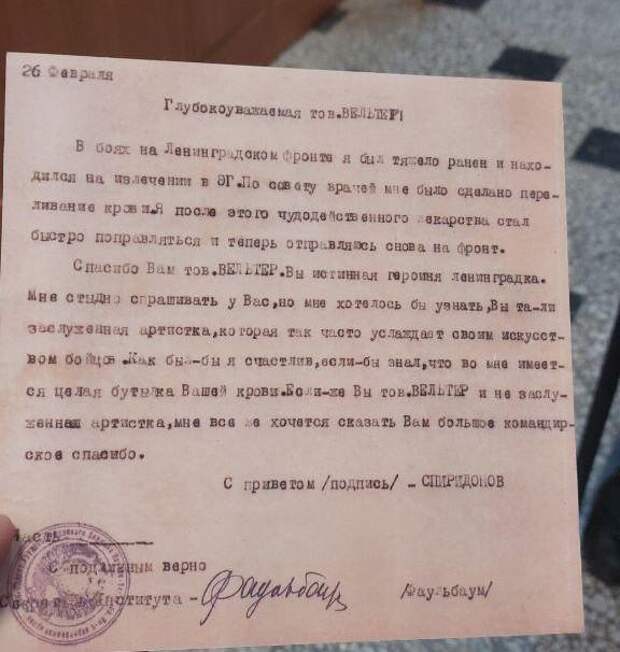 26 Февраля
Глубокоуважаемая тов.ВЕЛЬТЕР!
В боях на Ленинградском фронте я был тяжело ранен и нахо-
дился на излечении в ЭГ.По совету врачей мне было сделано пере-
ливание крови.Я после этого чудодейственного лекарства стал
быстро поправляться и теперь отправляюсь снова на фронт.
Спасибо Вам тов.ВЕЛЬТЕР.Вы истинная героиня ленинградка.
Мне стыдно спрашивать у Вас,но мне хотелось бы узнать,Вы та-ли
заслуженная артистка,которая так часто услаждает своим искусст-
вом бойцов.Как был-бы я счастлив,если-бы знал,что во мне имеет-
ся целая бутылка Вашей крови.Если-же Вы тов.ВЕЛЬТЕР и не заслу-
женная артистка,мне все же хочется сказать Вам большое командир-
ское спасибо.
С приветом /подпись/ - СПИРИДОНОВ
Часть
С подлинным верно
Института - Фаульбаум /Фаульбаум/